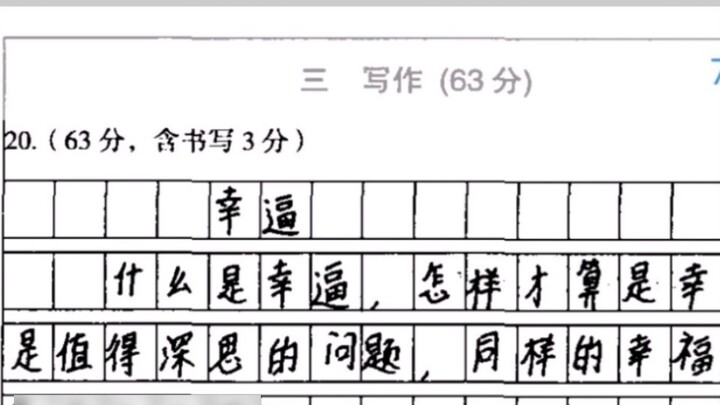 三 写作 (63 分)
20.（63 分，含书写 3 分）
幸逼
什么是幸逼，怎样才算是幸
是值得深思的问题，同样的幸福